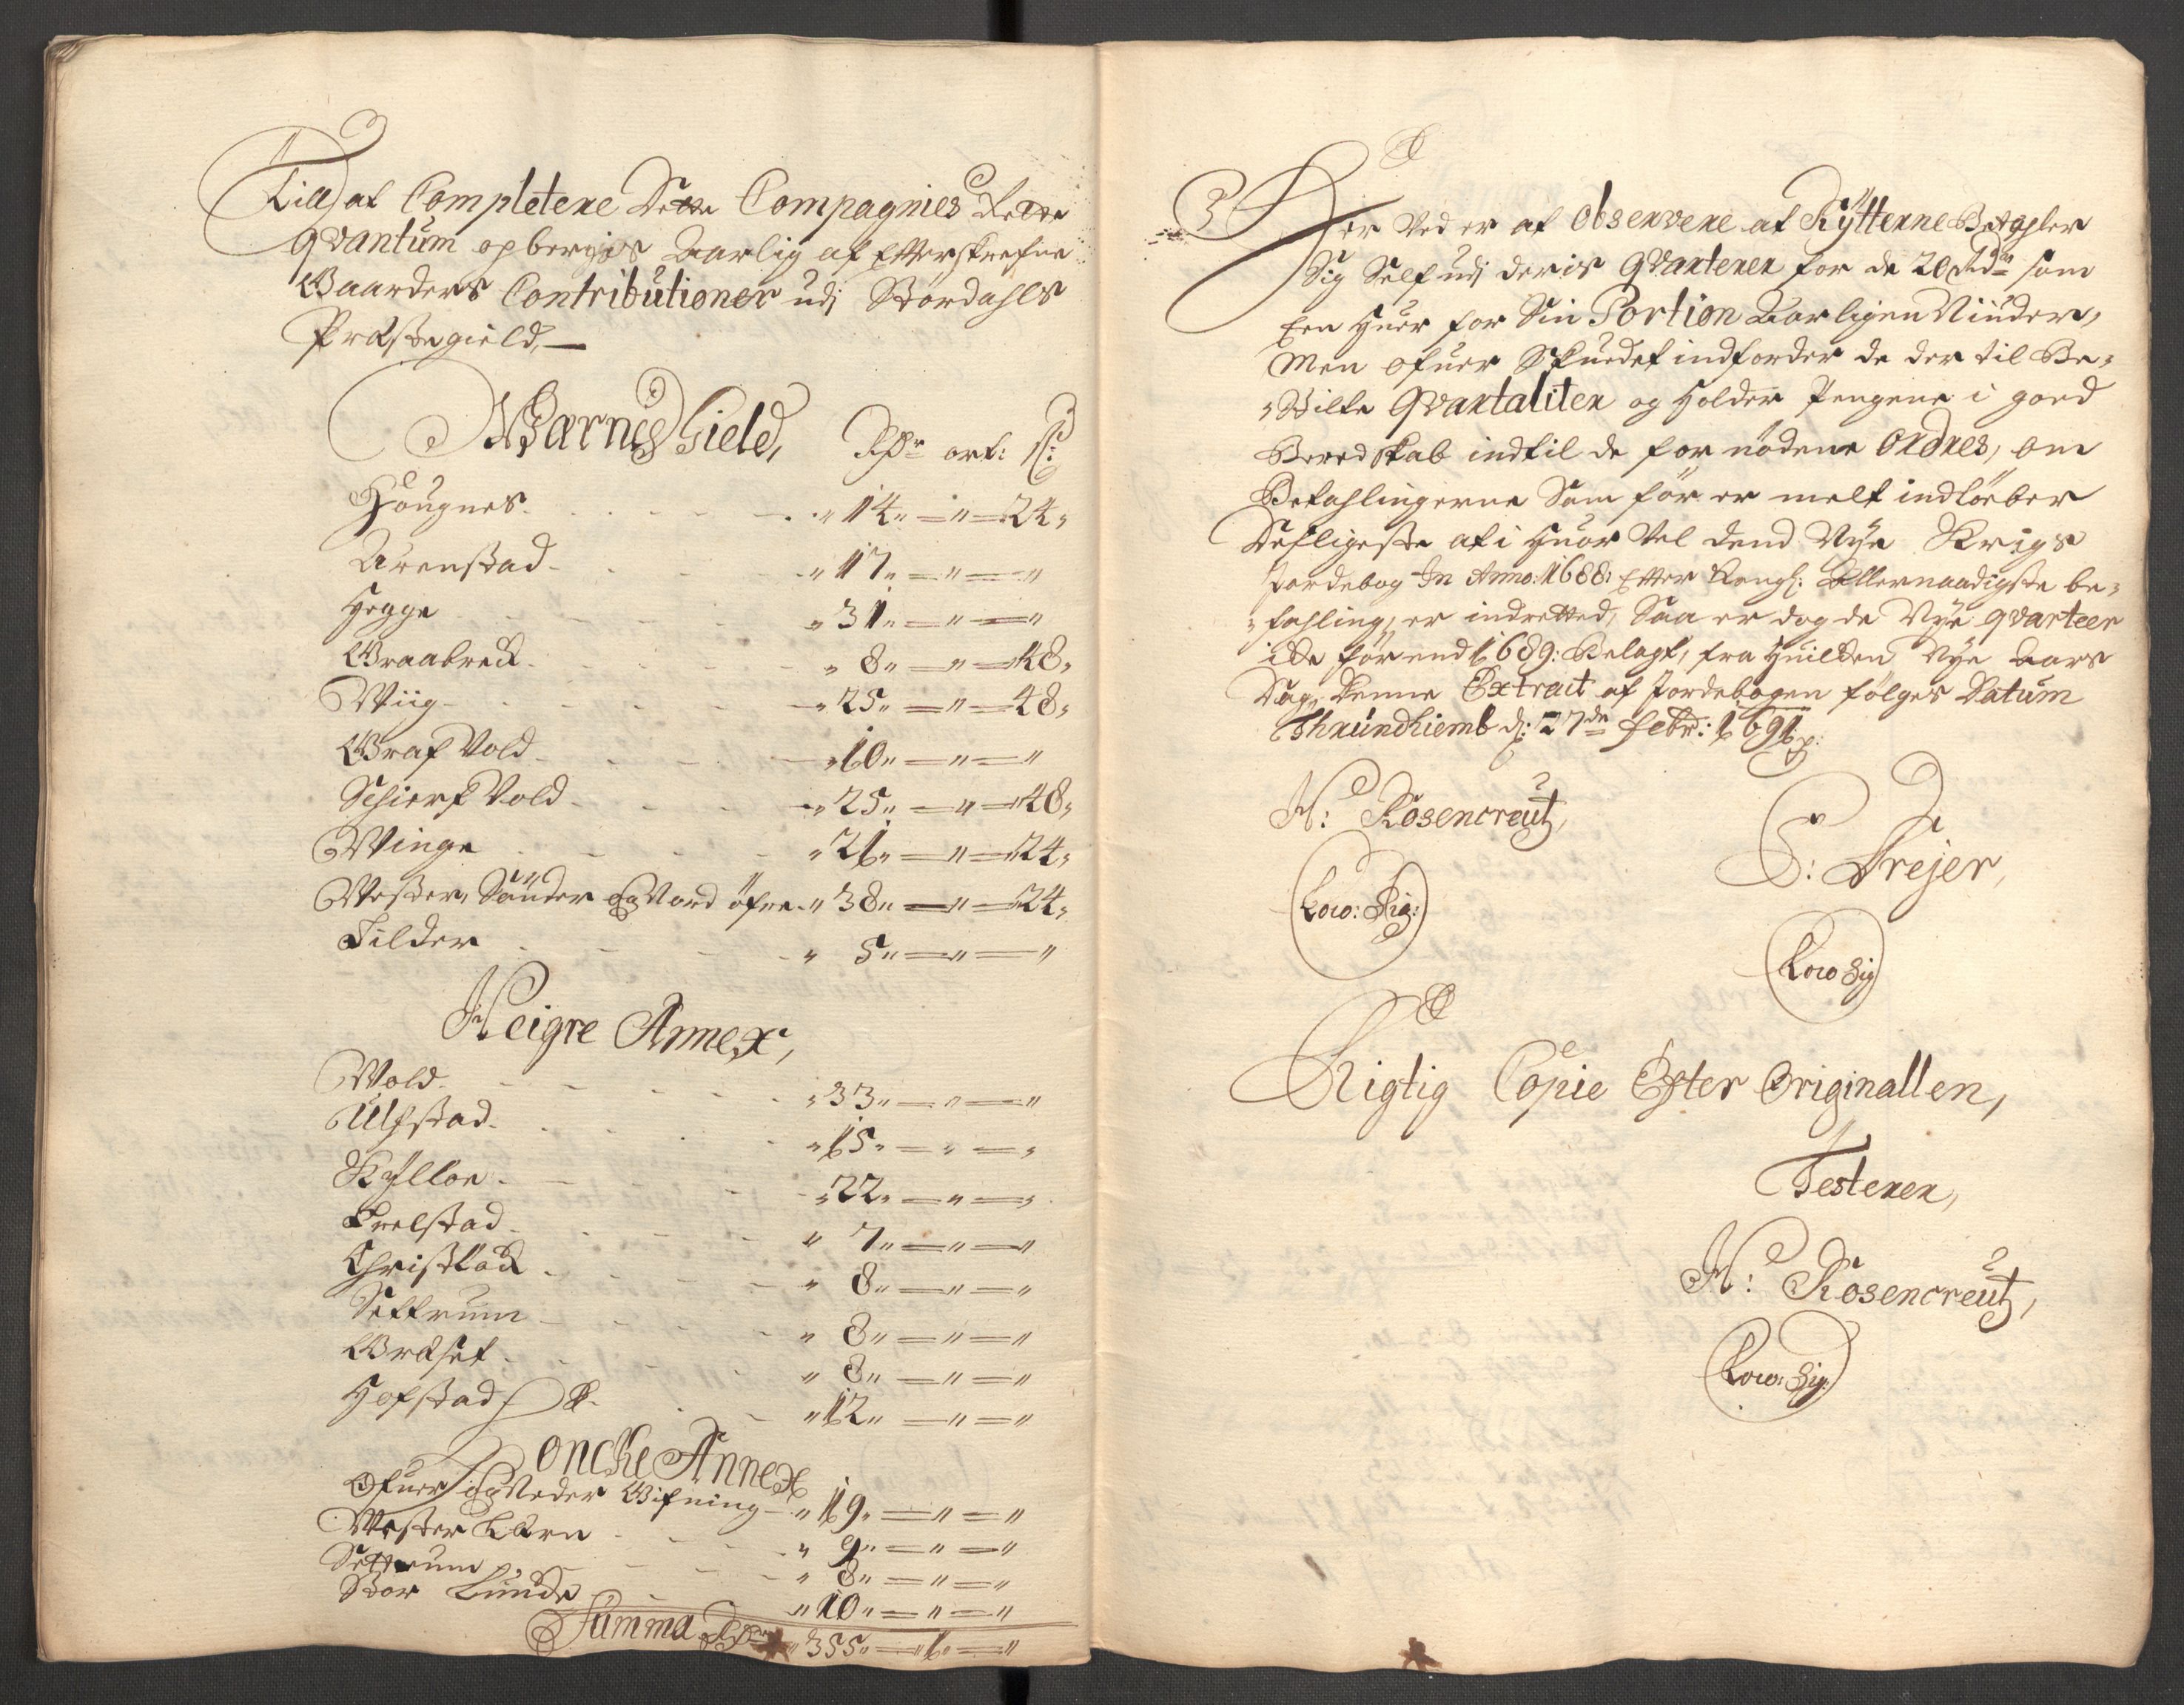 Till at Completere Dette Compagnies Rette
qvantum opbergis Aarlig af Efterskrefne
Gaarders Contributioner udj Størdahls
Præstegield,
Wærnes Gield, Rdr ort: s:
Hougnes. " 14 " = " = 24 "
Arenstad - " 17 " = " = "
Hegge " 31 " = " = "
Graabreck. " 8 " = " = 48 "
Wiig - " 25 " = " = 48 "
Graf Vold - " 10 " = " = "
Schierf Vold - " 25 " = " = 48 "
Winge " 21 " = " = 24 "
Wester, Sønder og Nord øfre - " 38 " = " = 24 "
Tilder " 5 " = " = "
Heigre Annex,
Wold - " 33 " = " = "
Ulfstad. " 15 " = " = "
Kylloe - " 22 " = " = "
Trelstad. " 7 " = " = "
Christlod. " 8 " = " = "
Settrum - " 8 " = " = "
Græset. " 8 " = " = "
Hofstad " 12 " = " = "
Loncke Annex
Ofuer og Neder Wifning - " 19 " = " = "
Wester Kiørn " 9 " = " = "
Settrum " 8 " = " = "
Stor Lunde " 10 " = " = "
Summa Rdr " 355 " = 1 " = "
Her ved er at observere at Rytterne Betahler
Sig Self udj deris qvarterer for de 20 Rdr som
Een huer for Sin Portion Aarligen Niuder,
Men ofuer Skuedet indforder de der til Be-
-vilte qvartaliter og holder Pengene i goed
Beredskab indtil de fornødene Ordres, om
Betahlingerne Som før er melt indløber
Desligeste at i huor vel dend Nye Krigs
Jordebog In Anno: 1688: Efter Kongl: Allernaadigste be-
-fahling, er indretted, Saa er dog de Nye qvarteer
icke førend 1689: Belagt, fra huilcken Nye Aars
Dag, denne Extract af Jordebogen følges Datum
Thrundhiemb d: 27de Febr: 1691 p:
H: Rosencreutz,
Loco: Sig:
E: Dreyer,
Loco Sig
Rigtig Copie Efter Originallen,
Testerer,
H: Rosencreutz,
Loco: Sig: